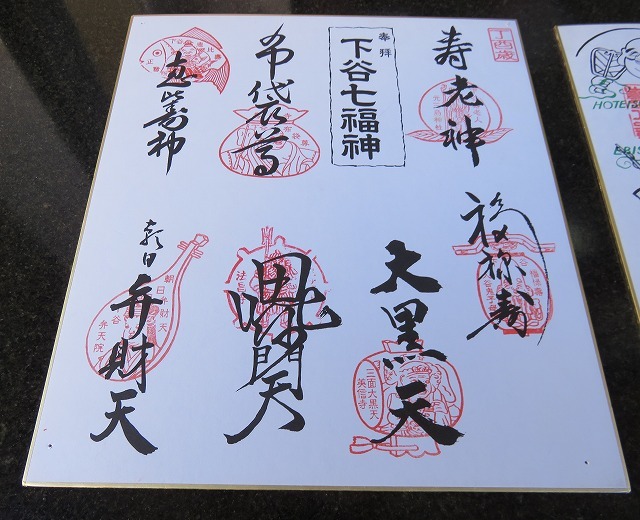 丁酉歳
寿老神
奉拝
下谷七福神
布袋尊
恵比寿神
福禄寿
大黒天
三面大黒天
英信寺
毘沙門天
朝日弁財天
朝日弁財天
弁天院
HOTEI
EBIS